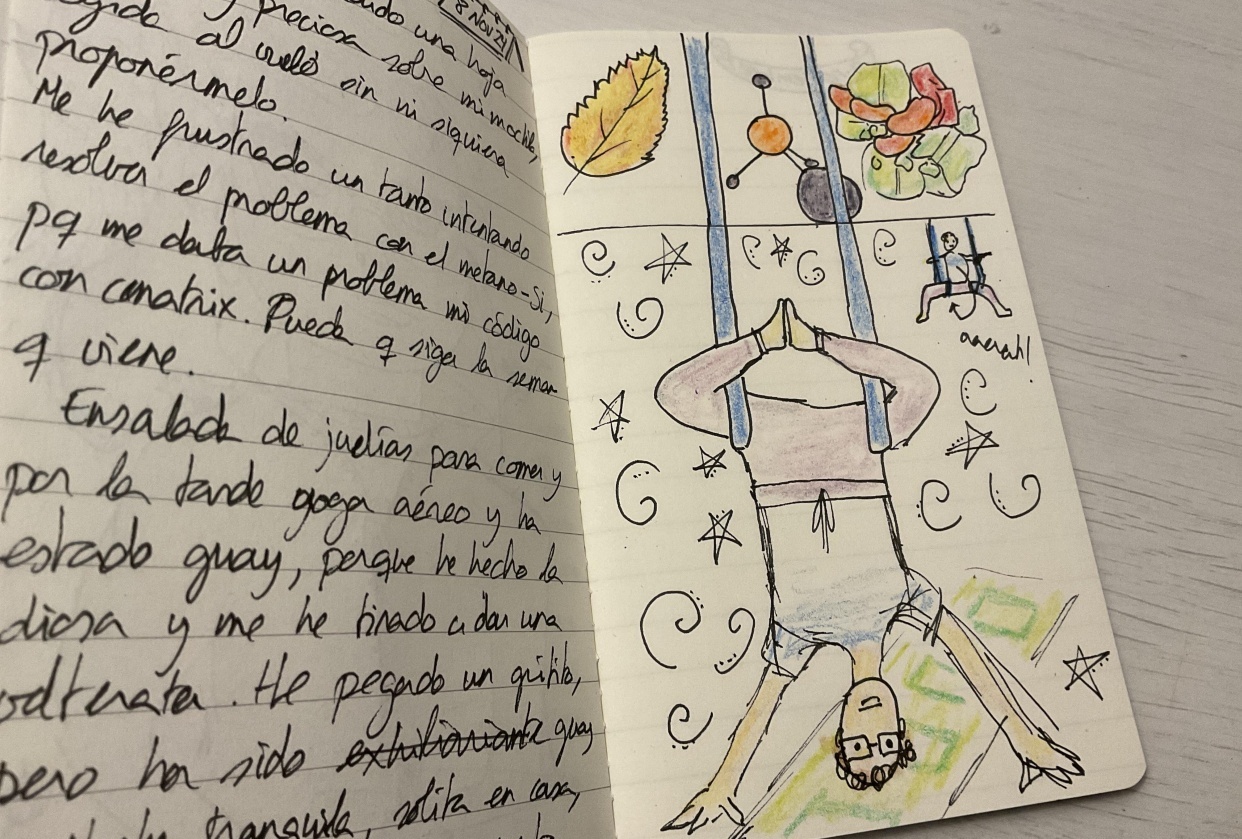 8 NOV 24
una hoja
y preciosa sobre mi mochila,
al vuelo sin ni siquiera
proponérmelo.
Me he frustrado un tanto intentando
resolver el problema con el metano-Si,
pq me daba un problema mi código
con cmatrix. Puede q siga la seman
q viene.
Ensalada de judías para comer y
por la tarde yoga aéreo y ha
estado guay, porque he hecho la
diosa y me he tirado a dar una
voltereta. He pegado un gritito,
pero ha sido guay
tranquila, solita en casa,
aaaaah!